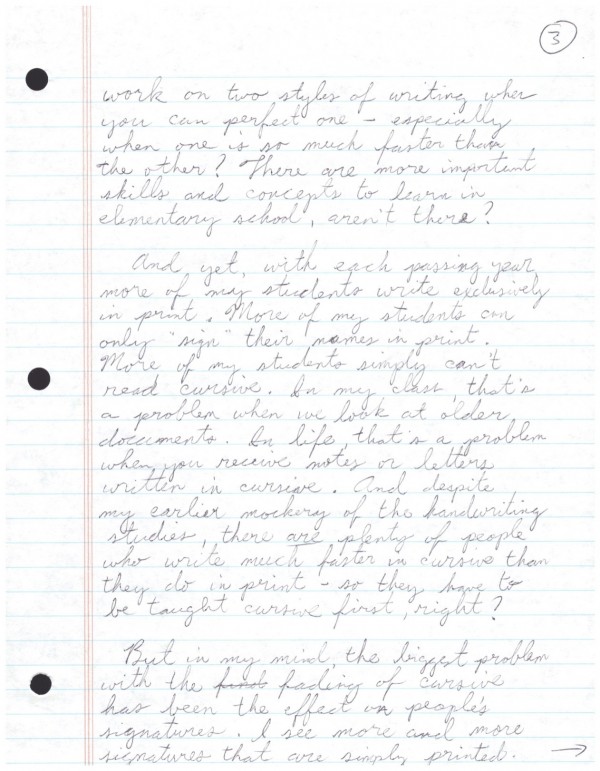 3
work on two styles of writing when
you can perfect one - especially
when one is so much faster than
the other? There are more important
skills and concepts to learn in
elementary school, aren't there?
And yet, with each passing year,
more of my students write exclusively
in print. More of my students can
only "sign" their names in print.
More of my students simply can't
read cursive. In my class, that's
a problem when we look at older
documents. In life, that's a problem
when you receive notes or letters
written in cursive. And despite
my earlier mockery of the handwriting
studies, there are plenty of people
who write much faster in cursive than
they do in print - so they have to
be taught cursive first, right?
But in my mind, the biggest problem
with the fading of cursive
has been the effect on people's
signatures. I see more and more
signatures that are simply printed. →